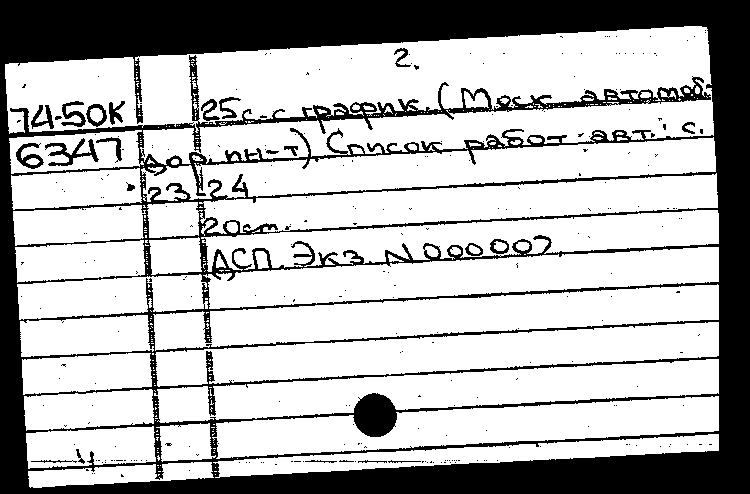 2.
74-50К 25с. с график. (Моск автомоб.-
6347 дор. ин-т). Список работ авт.: с.
23-24.
20см.
ДСП. Экз. N 000007.